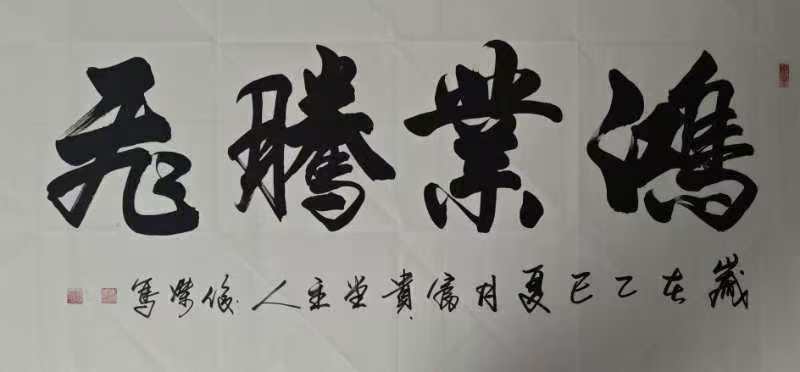 鴻業騰飛
歲在乙巳夏月富貴堂主人俊傑寫